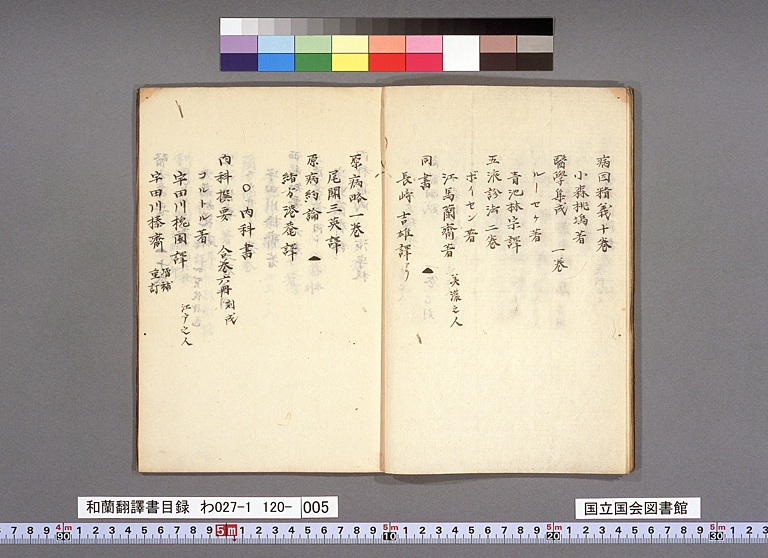 病因精義十巻
小森桃塢著
醫學集成 一巻
ルーセ著
青地林宗譯
五液診法二巻
ボイセン著
江馬蘭齋著
美濃之人
同書
長崎 吉雄譯
原病略一巻
尾関三英譯
原病約論
緒方洪庵譯
○内科書
内科撰要 合巻六冊 刻成
ゴルトル著
宇田川槐園譯
江戸之人
宇田川榛齋 増補重訂
和蘭翻譯書目録 わ027-1 120- 005
国立国会図書館